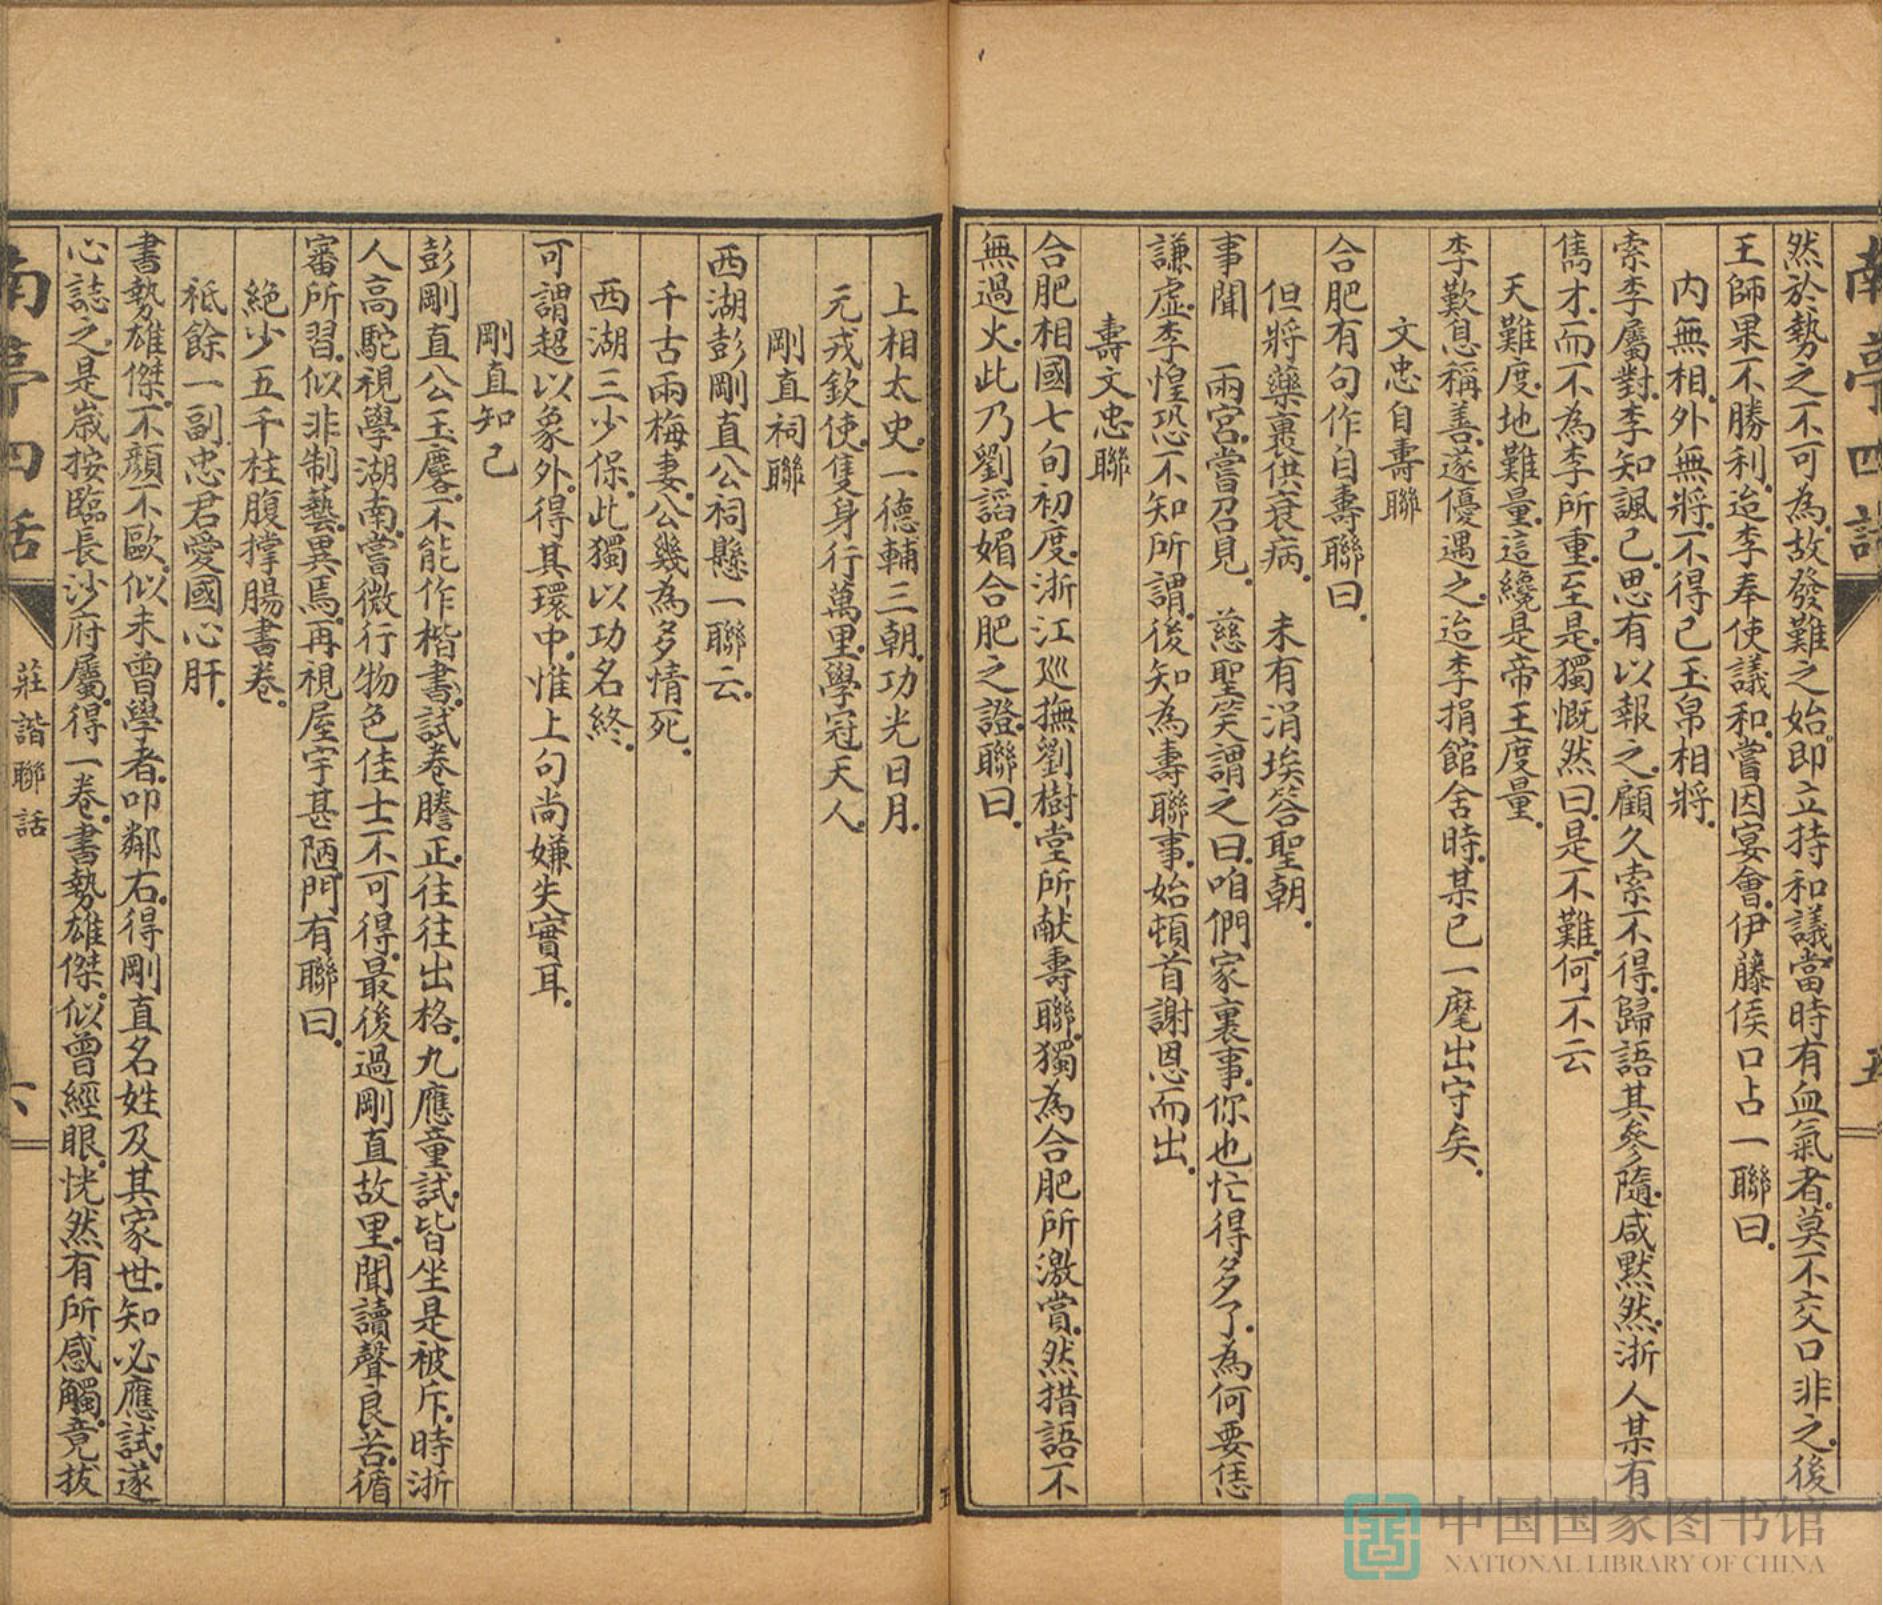 南亭四話
五
然於勢之不可為.故發難之始.即立持和議.當時有血氣者.莫不交口非之.後
王師果不勝利.迨李奉使議和.嘗因宴會.伊藤侯口占一聯曰.
内無相.外無將.不得已玉帛相將.
索李屬對.李知諷己.思有以報之.顧久索不得.歸語其參隨.咸默然.浙人某有
雋才.而不為李所重.至是.獨慨然曰.是不難.何不云
天難度.地難量.這纔是帝王度量.
李歎息稱善.遂優遇之.迨李捐館舍時.某已一麾出守矣.
文忠自壽聯
合肥有句作自壽聯曰.
但將藥裹供衰病.　未有涓埃答聖朝.
事聞　兩宮.嘗召見.　慈聖笑謂之曰.咱們家裏事.你也忙得多了.為何要恁
謙虛.李惶恐.不知所謂.後知為壽聯事.始頓首謝恩而出.
壽文忠聯
合肥相國七旬初度.浙江巡撫劉樹堂所献壽聯.獨為合肥所激賞.然措語不
無過火.此乃劉謟媚合肥之證.聯曰.
上相太史.一德輔三朝.功光日月.
元戎欽使.隻身行萬里.學冠天人.
剛直祠聯
西湖彭剛直公祠懸一聯云.
千古兩梅妻.公幾為多情死.
西湖三少保.此獨以功名終.
可謂超以象外.得其環中.惟上句尚嫌失實耳.
剛直知己
彭剛直公玉麐.不能作楷書.試卷謄正.往往出格.九應童試.皆坐是被斥.時浙
人高駝視學湖南.嘗微行物色佳士不可得.最後過剛直故里.聞讀聲良苦.循
審所習.似非制藝.異焉.再視屋宇甚陋.門有聯曰.
絶少五千柱腹撐腸書卷.
祇餘一副忠君愛國心肝.
書勢雄傑.不顏不歐.似未曾學者.叩鄰右.得剛直名姓及其家世.知必應試.遂
心誌之.是歲按臨長沙府屬.得一卷.書勢雄傑.似曾經眼.恍然有所感觸.竟拔
南亭四話
莊諧聯話
六
中国国家图书馆
NATIONAL LIBRARY OF CHINA